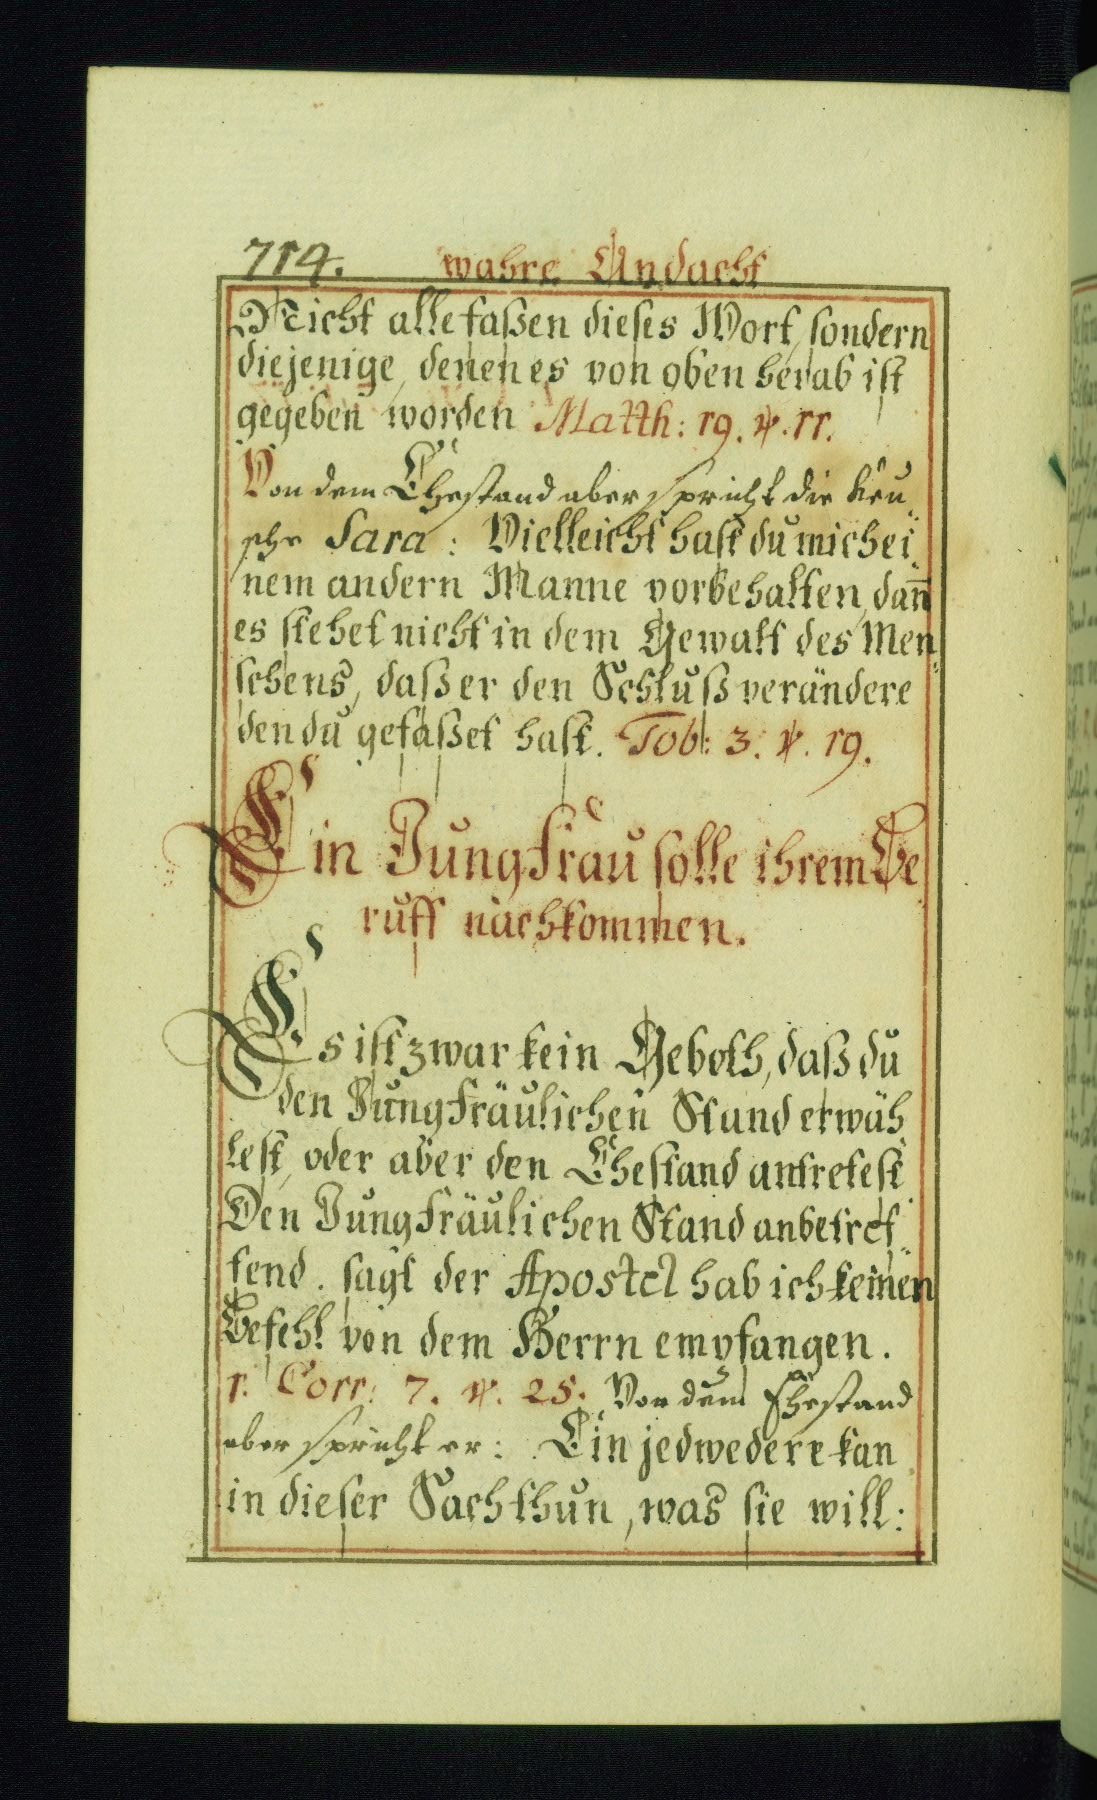 714. wahre Andacht
Nicht alle faßen dieses Wort, sondern
diejenige, denen es von oben herab ist
gegeben worden Matth: 19. ℣. 11.
Von dem Ehestand aber spricht die keu„
sche Sara: Vielleicht hast du mich ei„
nem andern Manne vorbehalten, dan̄
es stehet nicht in dem Gewalt des Men„
schens, daß er den Schluß verändere
den du gefaßet hast. Tob: 3. ℣. 19.
Ein Jungfrau solle ihrem Be„
ruff nachkommen.
Es ist zwar kein Geboth, daß du
den Jungfräulichen Stand erwäh„
lest, oder aber den Ehestand antretest
Den Jungfräulichen Stand anbetref„
fend. sagt der Apostel hab ich keinen
Befehl von dem Herrn empfangen.
1. Corr: 7. ℣. 25. Von dem Ehestand
aber spricht er: Ein jedwedere kan
in dieser Sach thun, was sie will: